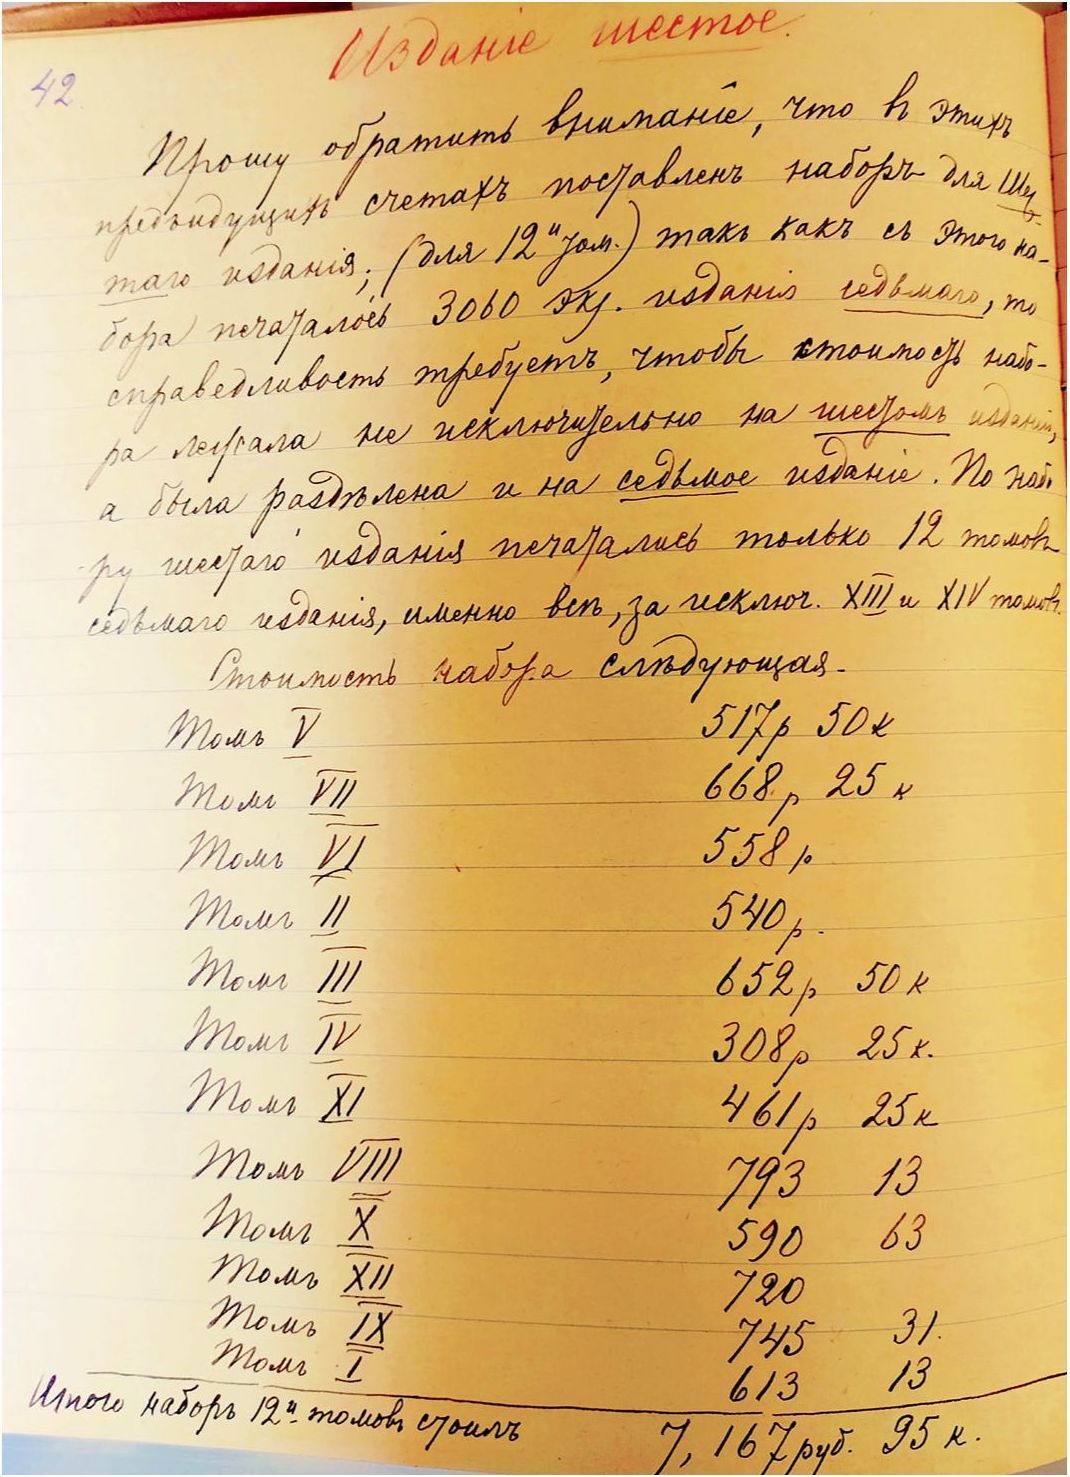 Изданіе шестое.
42
Прошу обратить вниманіе, что въ этихъ
предъидущихъ счетахъ поставленъ наборъ для Шес-
таго изданія; (для 12и том.) такъ какъ съ этого на-
бора печаталось 3060 экз. изданія седьмаго, то
справедливость требуетъ, чтобы стоимость набо-
ра лежала не исключительно на шестомъ изданіи,
а была раздѣлена и на седьмое изданіе. По набо-
ру шестаго изданія печатались только 12 томовъ
седьмаго изданія, именно всѣ, за исключ. XIII и XIV томовъ.
Стоимость набора слѣдующая.
Томъ V 517р 50к
Томъ VII 668р 25к
Томъ VI 558р
Томъ II 540р.
Томъ III 652р 50к
Томъ IV 308р 25к.
Томъ XI 461р 25к
Томъ VIII 793 13
Томъ X 590 63
Томъ XII 720
Томъ IX 745 31.
Томъ I 613 13
Итого наборъ 12и томовъ стоилъ 7,167 руб. 95 к.